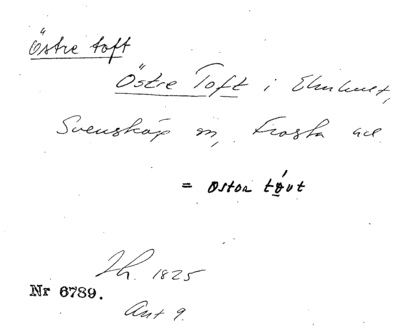 Östre toft
Östre Toft i Elmhult,
Svensköp sn, Frosta hd
= ostor tóut
Th. 1825
Nr 6789.
Ant 9.